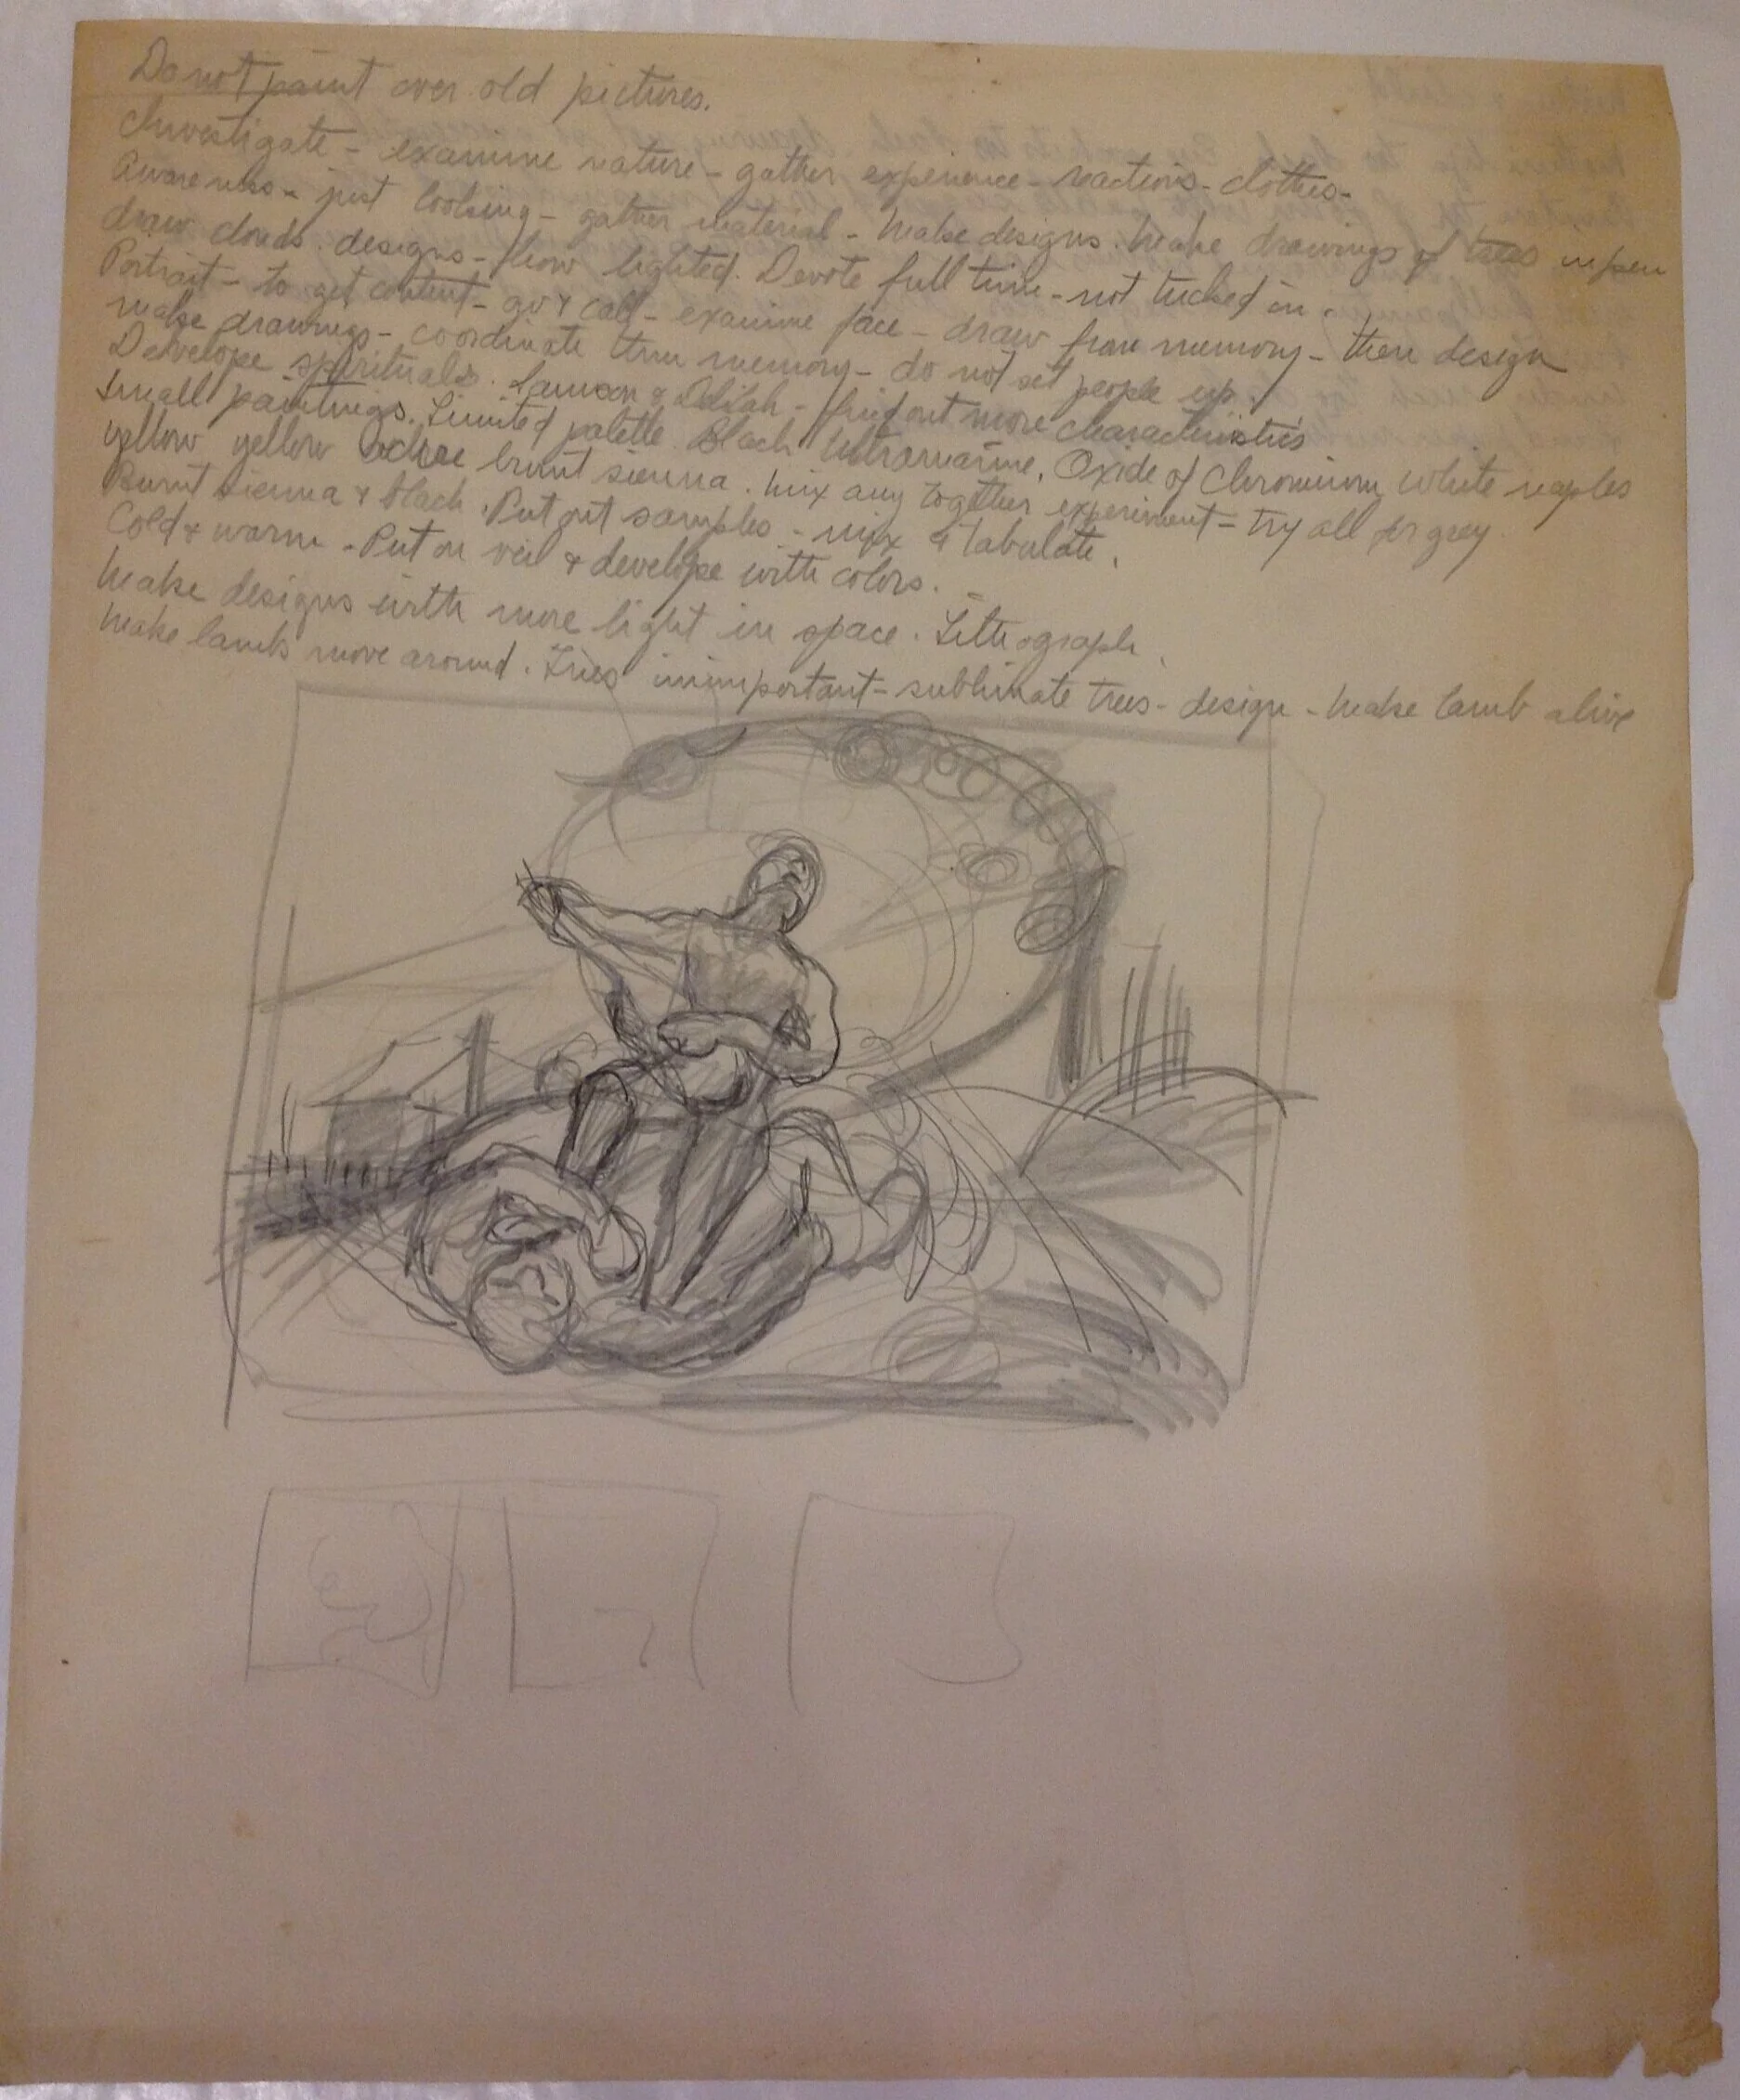 Do not paint over old pictures.
Investigate - examine nature - gather experience - reactions - clothes -
Awareness - just looking - gather material - Make designs. Make drawings of trees in pen
draw clouds. designs - how lighted. Devote full time - not tucked in.
Portrait - to get content - go & call - examine face - draw from memory - then design
make drawings - coordinate thru memory - do not set people up.
Develope spirituals. Samson & Delilah - find out more characteristics
Small paintings. Limited palette. Black Ultramarine, Oxide of Chromium white naples
yellow yellow ochre burnt sienna. Mix any together experiment - try all for grey.
Burnt sienna & black. Put out samples - mix & tabulate.
Cold & warm - Put on veil & develope with colors.
Make designs with more light in space. Lithograph.
Make lambs move around. Trees unimportant - sublimate trees - design - Make lamb alive